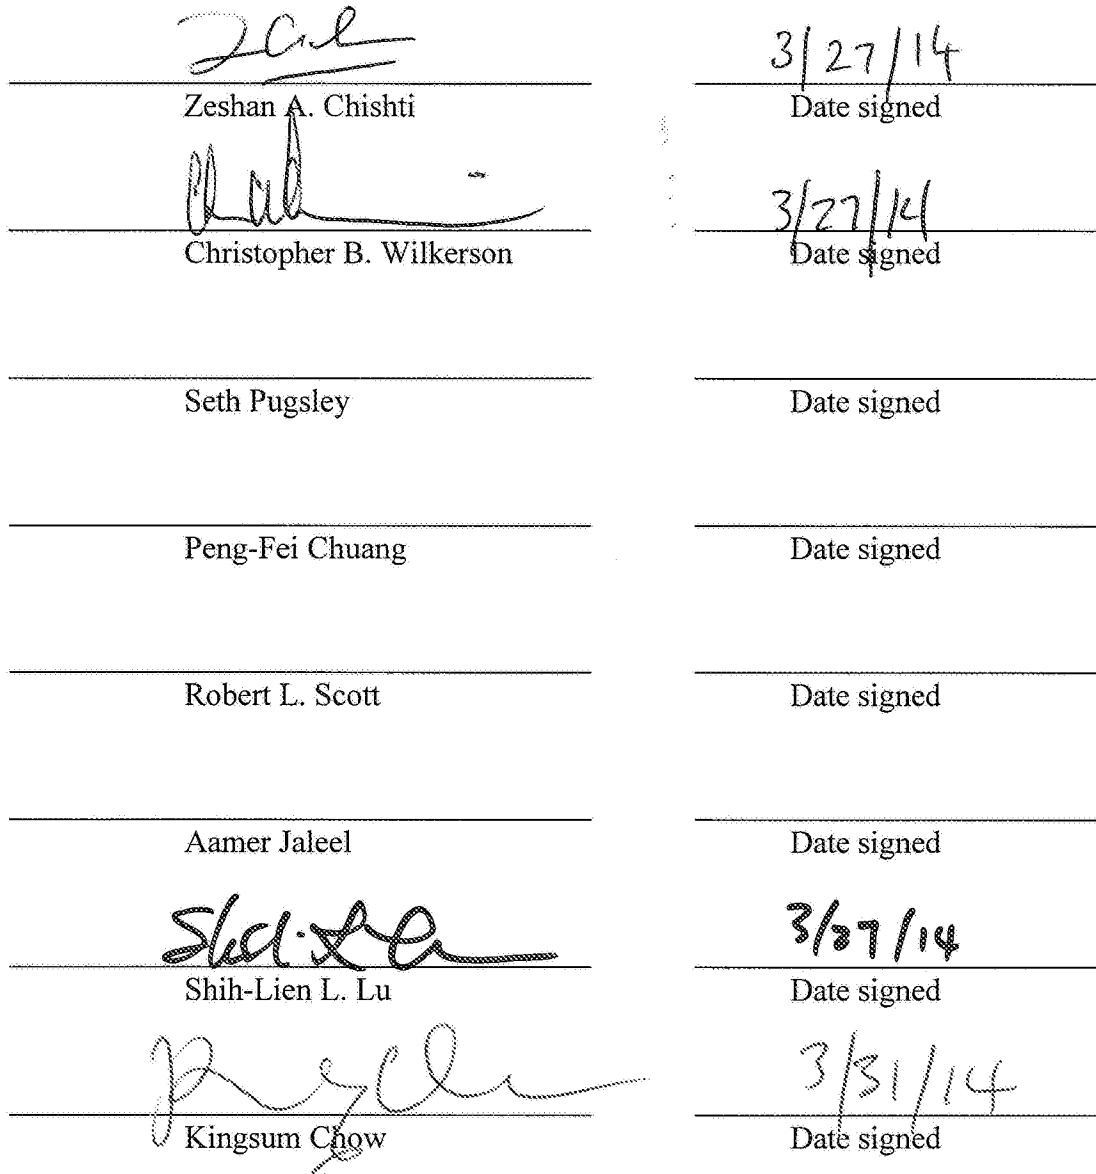 3/27/14
Zeshan A. Chishti Date signed
3/27/14
Christopher B. Wilkerson Date signed
Seth Pugsley Date signed
Peng-Fei Chuang Date signed
Robert L. Scott Date signed
Aamer Jaleel Date signed
3/27/14
Shih-Lien L. Lu Date signed
3/31/14
Kingsum Chow Date signed